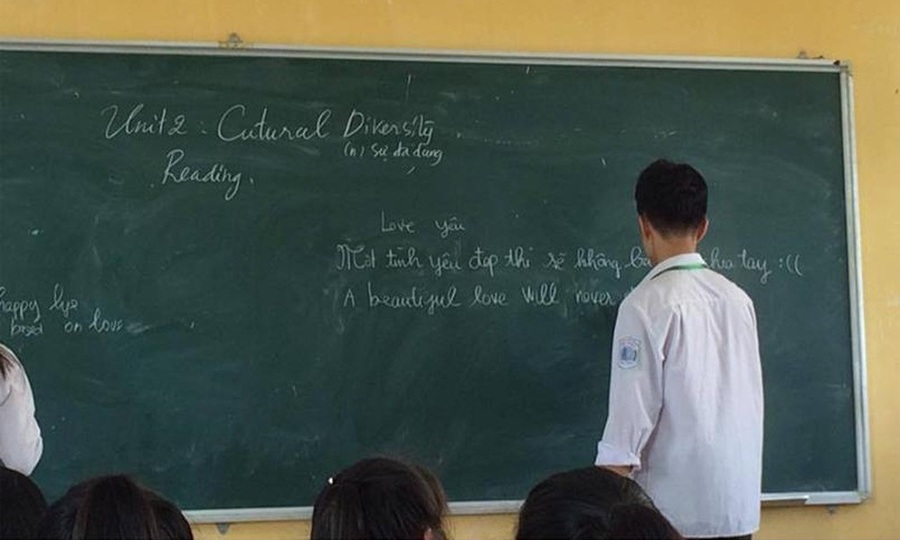 Unit 2 : Cutural Dikersity
(n) sự đa dạng
Reading.
Love yêu
Một tình yêu đẹp thì sẽ không tay :((
A beautiful love will never
happy
based on love